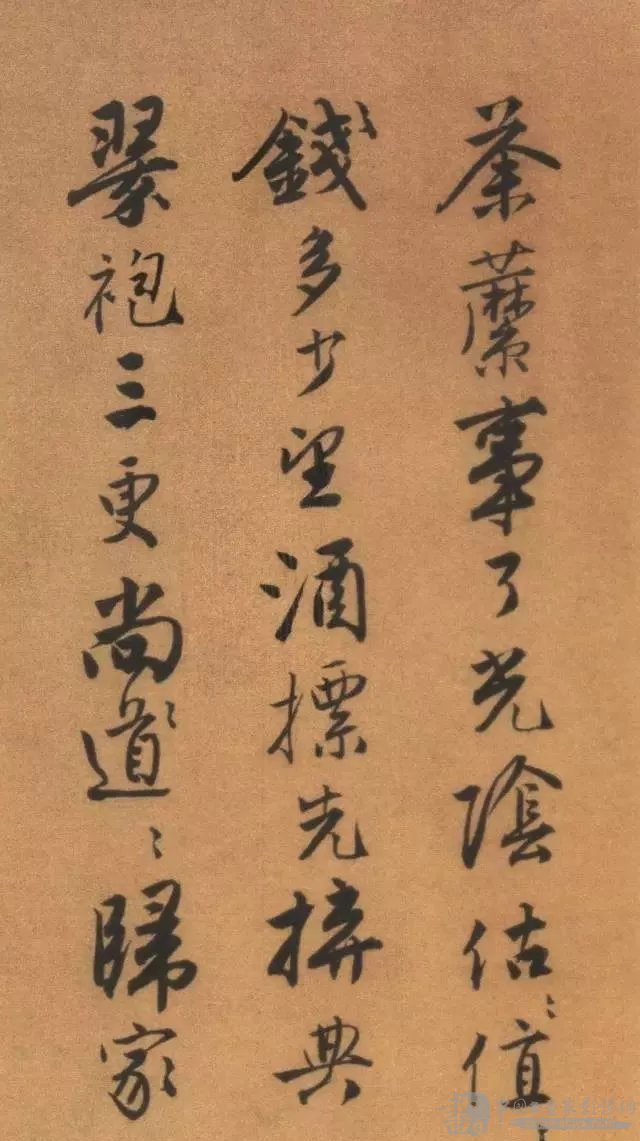 荼蘼事了光陰估值
錢多少望酒摽先拚典
翠袍三更尚道歸家